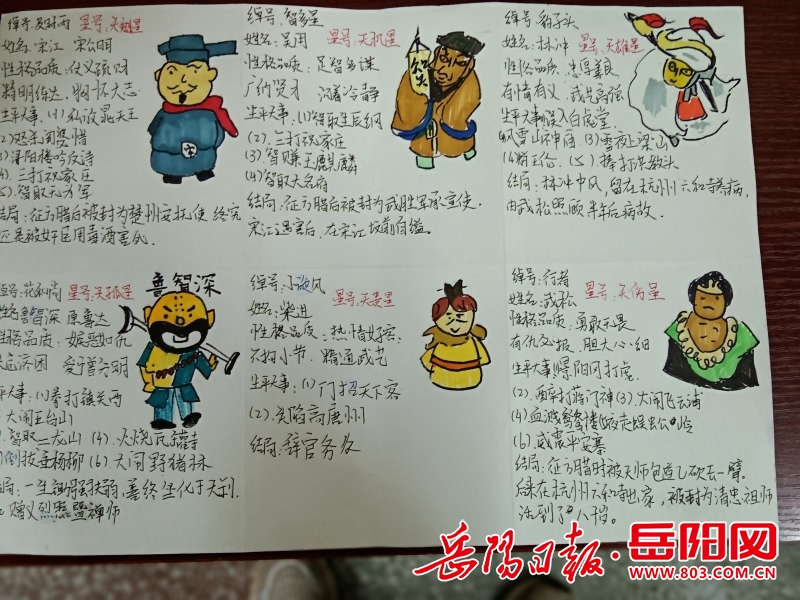 绰号:及时雨
星号:天魁星
姓名:宋江 宋公明
性格品质:仗义疏财
精明练达,胸怀大志
生平大事:(1)私放晁天王
(2)怒杀阎婆惜
(3)浔阳楼吟反诗
(4)三打祝家庄
结局:征方腊后被封为楚州安抚使 终究
还是被奸臣用毒酒害死
绰号:智多星
姓名:吴用 星号:天机星
性格品质:足智多谋
广纳贤才 沉着冷静
生平大事:(1)智取生辰纲
(2).三打祝家庄
(3)智赚玉麒麟
(4)智取大名府
结局:征方腊后被封为武胜军承宣使.
宋江遇害后,在宋江坟前自缢。
绰号:豹子头
姓名:林冲 星号:天雄星
性格品质:忠厚善良
有情有义 武艺高强
生平大事:误入白虎堂
风雪山神庙 (3)雪夜上梁山
(5).棒打洪教头
结局:林冲中风,留在杭州六和寺养病,
由武松照顾 半年后病故.
鲁智深
绰号:花和尚 星号:天孤星
姓名鲁智深 原鲁达
性格品质:嫉恶如仇
爱憎分明
生平大事:(1)拳打镇关西
大闹五台山
智取二龙山 (4).火烧瓦罐寺
倒拔垂杨柳 (6).大闹野猪林
结局:
绰号:小旋风
姓名:柴进 星号:天贵星
性格品质:热情好客
不拘小节.精通武艺
生平大事:(1)门招天下客
(2).失陷高唐州
结局:辞官务农
绰号:行者
姓名:武松 星号:天伤星
性格品质:勇敢无畏
有仇必报 胆大心细
生平大事:景阳冈打虎
(2).醉打蒋门神(3)大闹飞云浦
(4)血溅鸳鸯楼(5)夜走蜈蚣岭
(6)威震平安寨
结局:征方腊时被天师包道乙砍去一臂.
后来在杭州六和寺出家,被封为清忠祖师
活到了八十岁。
岳阳日报·岳阳网
WWW.803.COM.CN